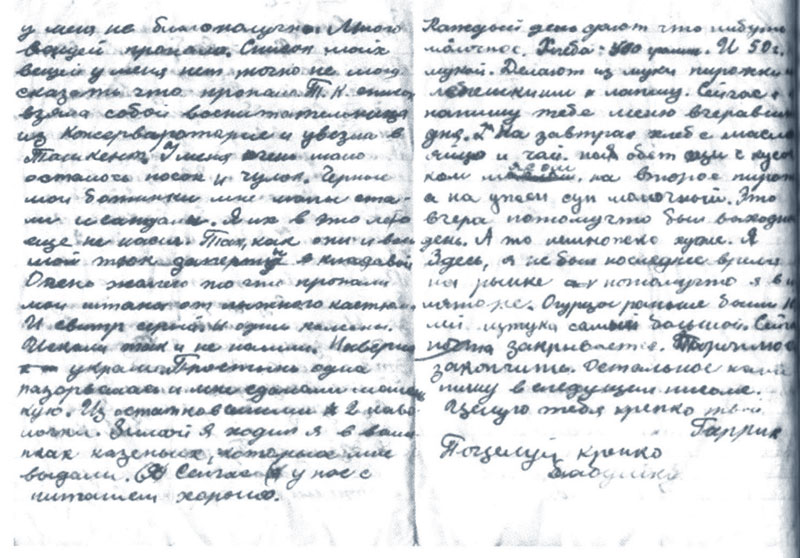 у меня не благополучно. Много
вещей пропало. Список моих
вещей у меня нет, точно не могу
сказать что пропало. Т.К. опись
взяла собой воспитательница
из консерваротории и увезла в
Ташкент. У меня очень мало
осталось носок и чулок. Черные
мои ботинки мне малы ста-
ли и сандали. Я их в это лето
еще не носил. Так, как они и весь
мой тюк заперты в кладовой
Очень жалко то что пропали
мои штаны от костюма.
И свитр серый и одни калоши.
Искали так и не нашли. Наверно
украли. Простыня одна
разорвалась и мне сделали мален
кую. Из остатков сшили 2 наво
лочки. Зимой я ходил в вале
нках казеных, которые мне
выдали. Сейчас у нас с
питанием хорошо.
Каждый день дают что нибуть
малочное. Хлеба - 400 грамм. И 50 г.
мукой. Делают из муки пирожки и
лепешки и лапшу. Сейчас я
напишу тебе меню вчерашн
дня. На завтрак хлеб с масло
яйцо и чай. на обет щи с куск
ком мясом, на второе пирог
а на ужен суп малочный. Это
вчера потомучто был выходн
день. А то немножко хуже. Я
здесь, я не был последнее время
на рынке потомучто я в и
ляторе. Огурцы раньше были
штука самый большой. Сейч
почта закрывается. 
закончить. Остальное
пишу в следущем письме.
Целую тебя крепко твой
Гаррик
Поцелуй крепко
бабушку